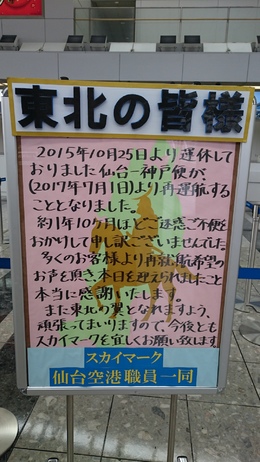 東北の皆様
2015年10月25日より運休して
おりました仙台ー神戸便が、
(2017年7月1日)より再運航する
こととなりました。
約1年10ケ月ほどご迷惑ご不便を
おかけして申し訳ございませんでした
多くのお客様より再就航希望の
お声を頂き、本日を迎えられましたこと
本当に感謝いたします。
また東北の翼となれますよう、
頑張ってまいりますので、今後とも
スカイマークを宜しくお願い致します
スカイマーク
仙台空港職員一同